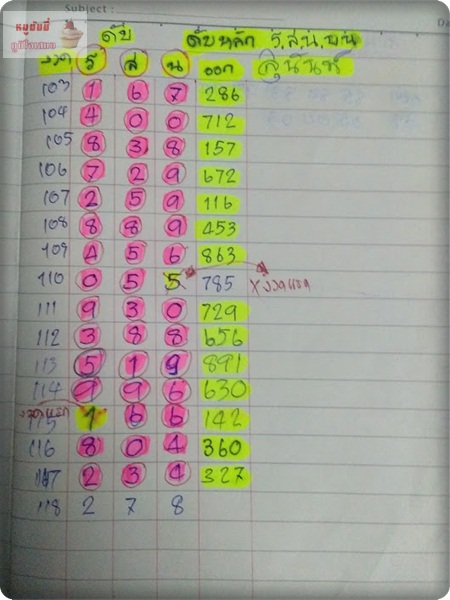 Subject :
หมูยิ้มมี่
ดับ ดับหลัก ร.ส.น.บน
งวด ร ส น ออก สุนันท์
103 1 6 7 286
104 4 0 0 712
105 8 3 8 157
106 7 2 9 672
107 2 5 9 116
108 8 8 9 453
109 4 5 6 863
110 0 5 5 785 X งวดแรก
111 9 3 0 729
112 3 8 8 656
113 5 1 9 891
114 9 9 6 630
งวดแรก
115 1 6 6 142
116 8 0 4 360
117 2 3 4 327
118 2 7 8